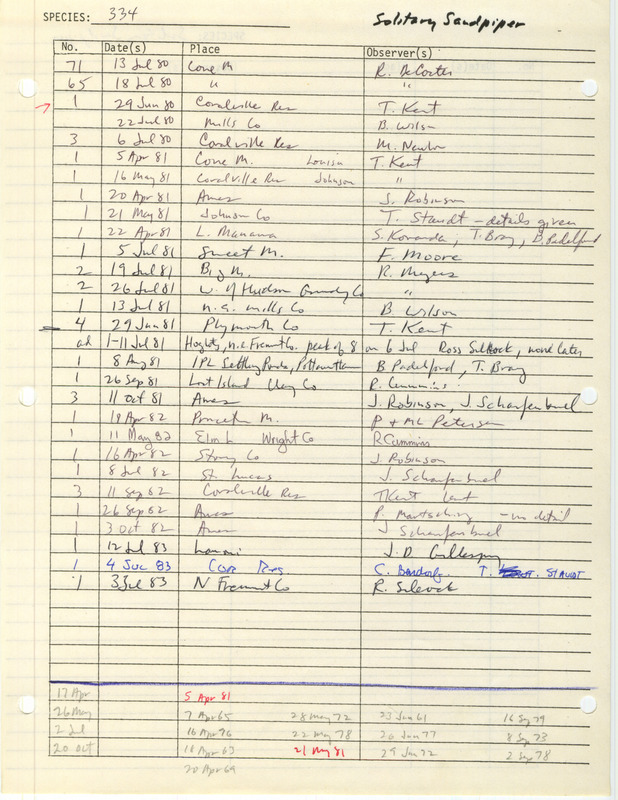 SPECIES: 334 Solitary Sandpiper
No. Date(s) Place Observer(s)
71 13 Jul 80 Cone M R. DeCoster
65 18 Jul 80 " "
1 29 Jun 80 Coralville Res T. Kent
22 Jul 80 Mills Co B. Wilson
3 6 Jul 80 Coralville Res M. Newlon
1 5 Apr 81 Cone M. Louisa T. Kent
1 16 May 81 Coralville Res Johnson "
1 20 Apr 81 Ames J. Robinson
1 21 May 81 Johnson Co T. Staudt - details given
1 22 Apr 81 L. Manawa S. Kovanda, T. Bray, B. Padelford
1 5 Jul 81 Sweet M. F. Moore
2 19 Jul 81 Big M. R. Myers
2 26 Jul 81 W. of Hudson Grundy Co "
1 13 Jul 81 n.e. Mills Co B. Wilson
4 29 Jun 81 Plymouth Co T. Kent
ad 1-11 Jul 81 n.e. Fremont Co. peak of 8 on 6 Jul Ross Silcock, more later
1 8 Aug 81 IPL Settling Ponds, Pottawattamie B Padelford, T. Bray
1 26 Sep 81 Lost Island Clay Co R. Cummins
3 11 Oct 81 Ames J. Robinson, J. Schaufenbuel
1 19 Apr 82 Princeton M. P & ML Petersen
1 11 May 82 Elm L Wright Co R Cummins
1 16 Apr 82 Story Co J. Robinson
1 8 Jul 82 St. Lucas J. Schaufenbuel
3 11 Sep 82 Coralville Res T Kent
1 26 Sep 82 Ames P. Martsching - no detail
1 3 Oct 82 Ames J Schaufenbuel
1 12 Jul 83 Lamoni J.D. Gillespey
1 4 Jul 83 Cor Res C. Bendorf T. Staudt
1 3 Jul 83 N Fremont Co R. Silcock
17 Apr 5 Apr 81
26 May 7 Apr 65 28 May 72 23 Jun 61 16 Sep 79
2 Jul 16 Apr 76 22 May 78 26 Jun 77 8 Sep 73
20 Oct 18 Apr 63 21 May 81 29 Jun 72 2 Sep 78
20 Apr 69